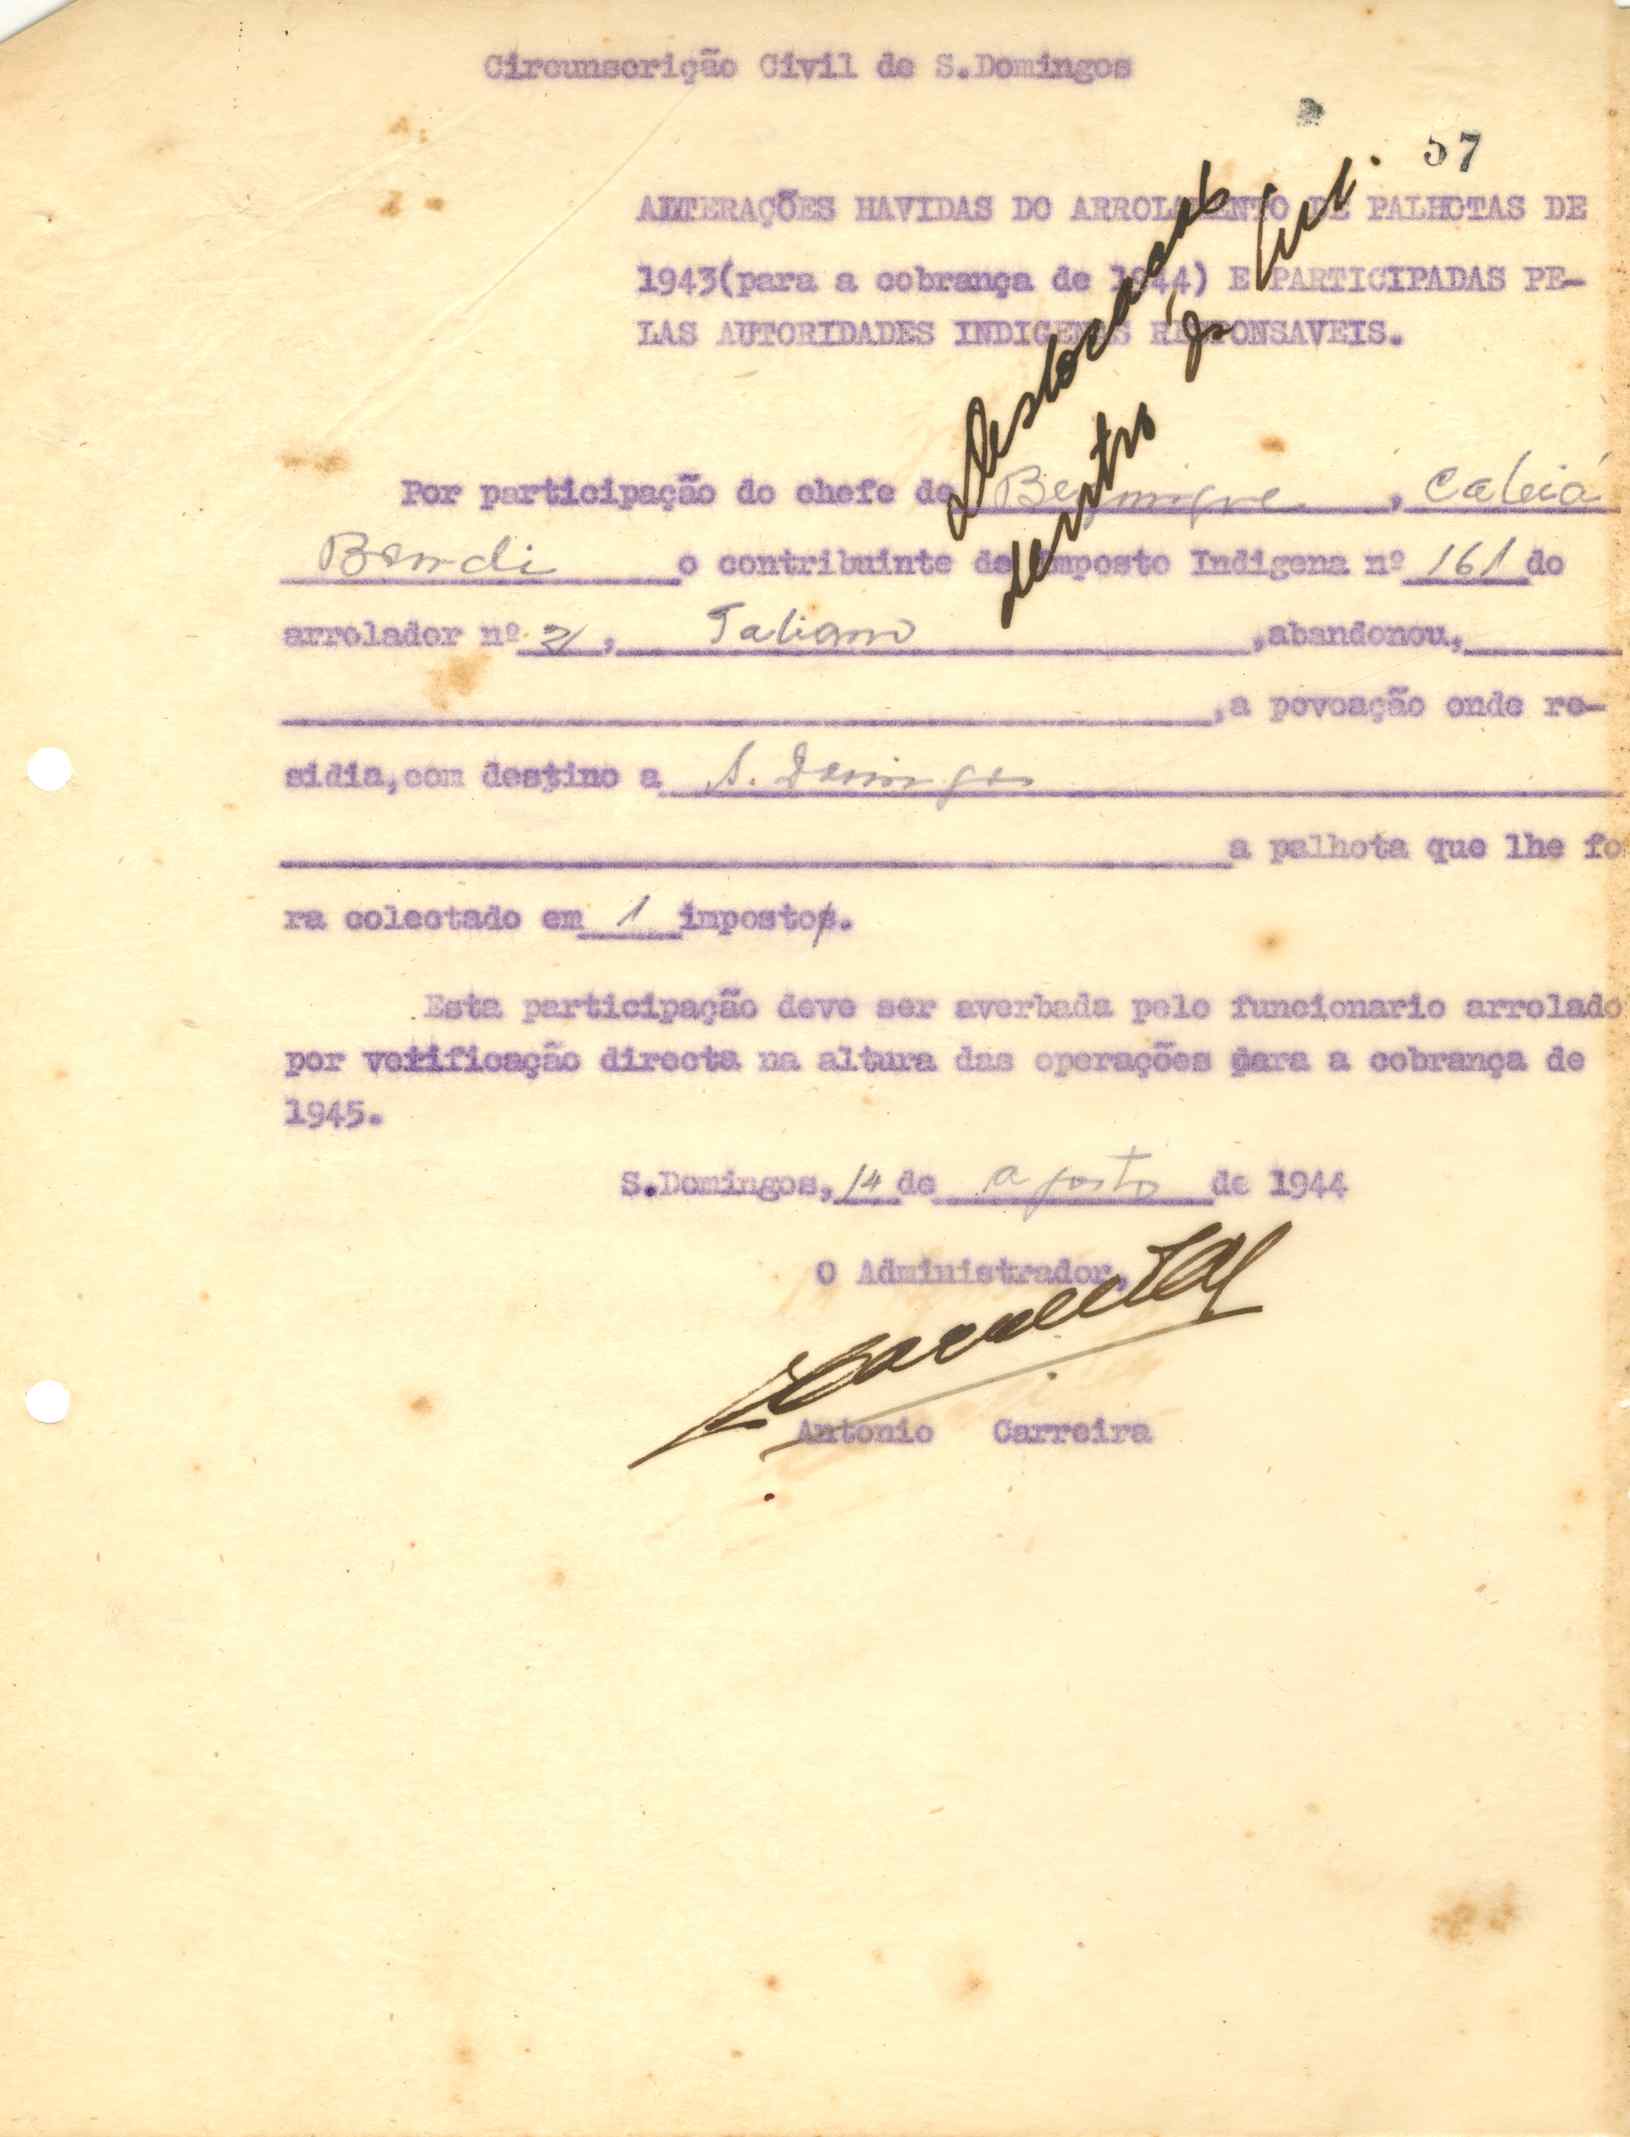 Circunscrição Civil de S.Domingos
57
ALTERAÇÕES HAVIDAS DO ARROLAMENTO DE PALHOTAS DE
1943(para a cobrança de 1944) E PARTICIPADAS PE-
LAS AUTORIDADES INDIGENAS RESPONSAVEIS.
dentro da
Por participação do chefe de , 
Bondi o contribuinte de imposto Indigena nº 161 do
arrolador nº 21, Taliano ,abandonou,
,a povoação onde re-
sidia,com destino a S. Domingos
a palhota que lhe fo
ra colectado em 1 impostos.
Esta participação deve ser averbada pelo funcionario arrolado
por verificação directa na altura das operações para a cobrança de
1945.
S.Domingos, 14 de agosto de 1944
O Administrador,
Antonio Carreira